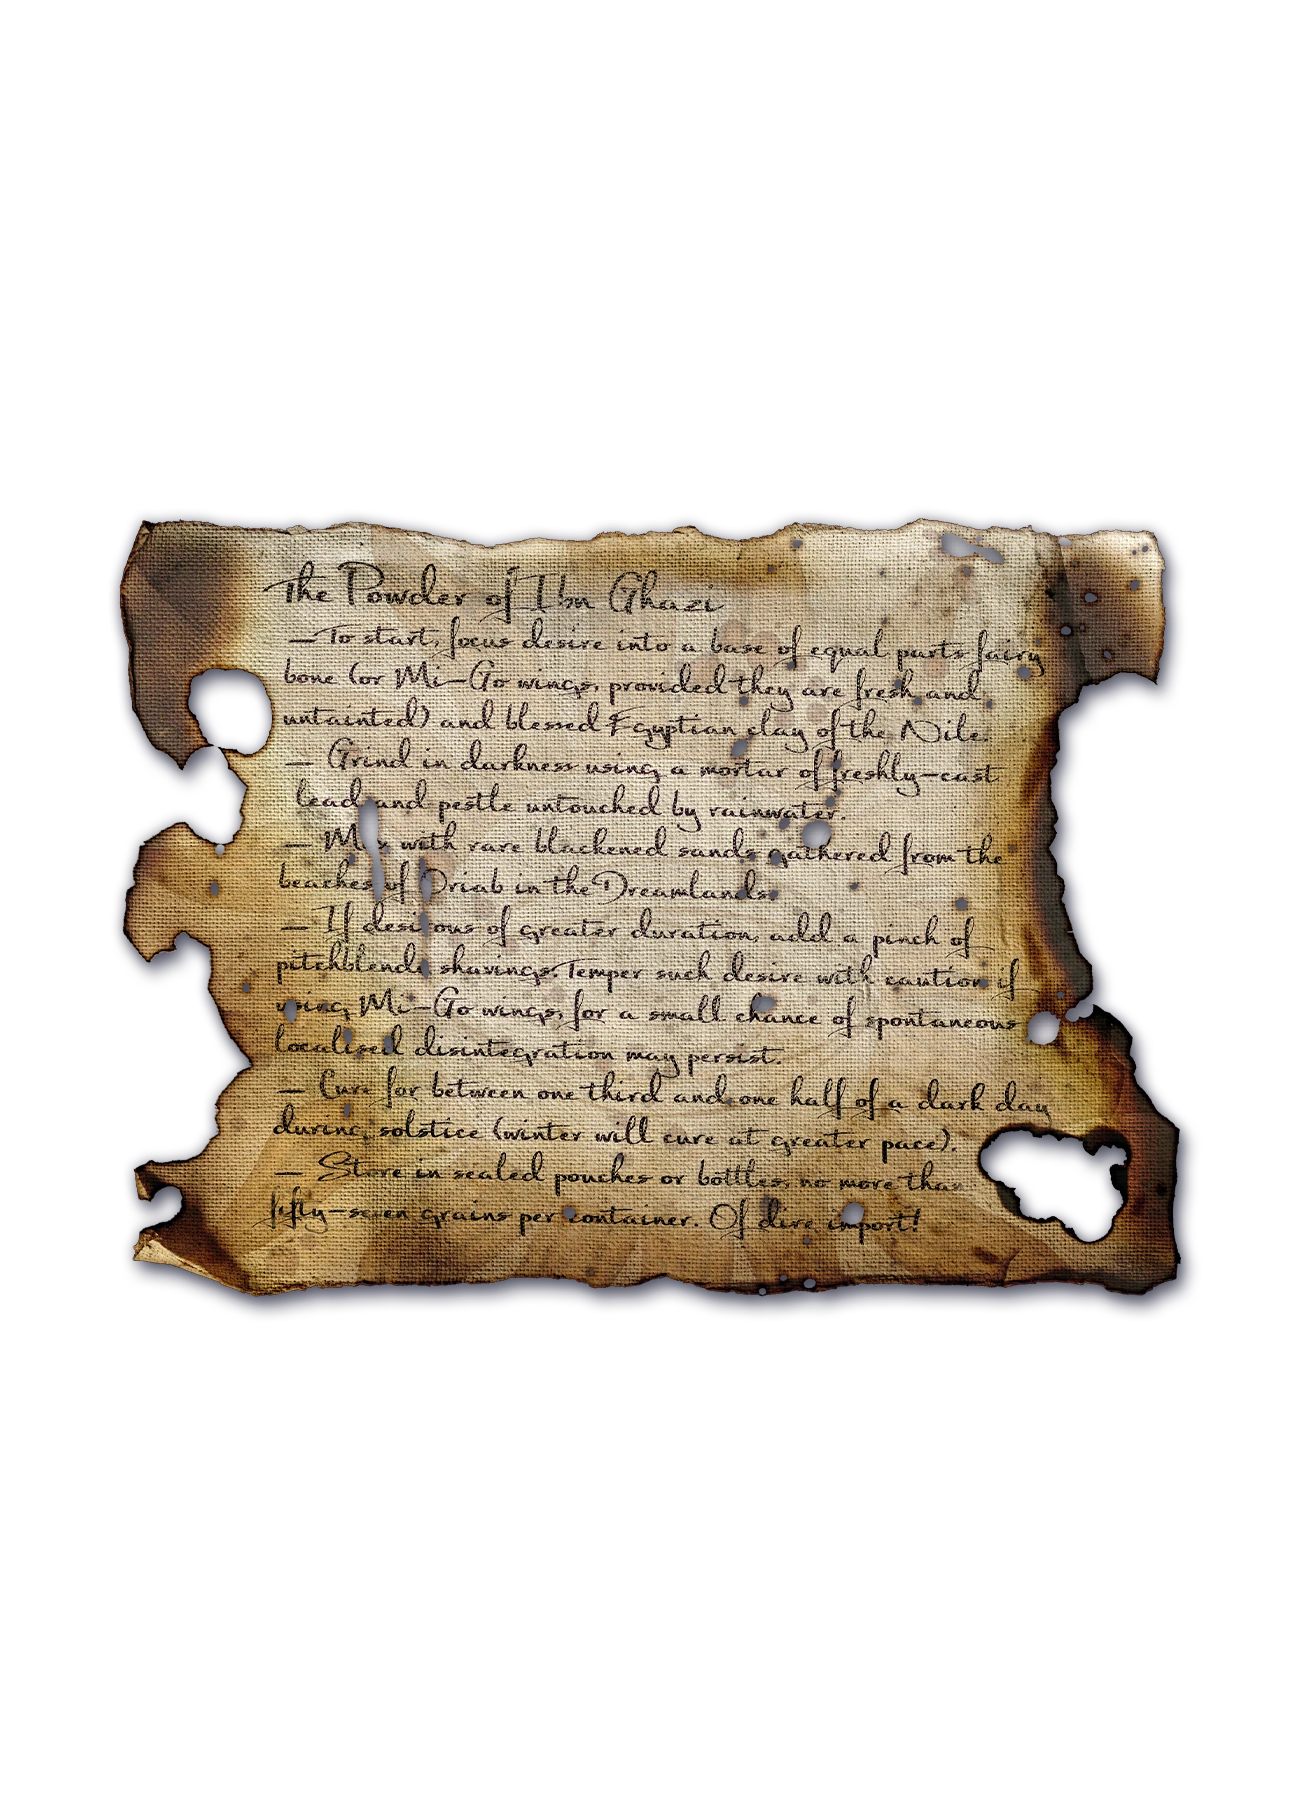 The Powder of Ibn Ghazi
– To start, focus desire into a base of equal parts fairy
bone (or Mi-Go wings, provided they are fresh and
untainted) and blessed Egyptian clay of the Nile.
– Grind in darkness using a mortar of freshly-cast
lead and pestle untouched by rainwater.
– Mix with rare blackened sands gathered from the
beaches of Oriab in the Dreamlands.
– If desirous of greater duration, add a pinch of
pitchblende shavings. Temper such desire with caution if
using Mi-Go wings, for a small chance of spontaneous
localised disintegration may persist.
– Cure for between one third and one half of a dark day
during solstice (winter will cure at greater pace).
– Store in sealed pouches or bottles, no more than
fifty-seven grains per container. Of dire import!